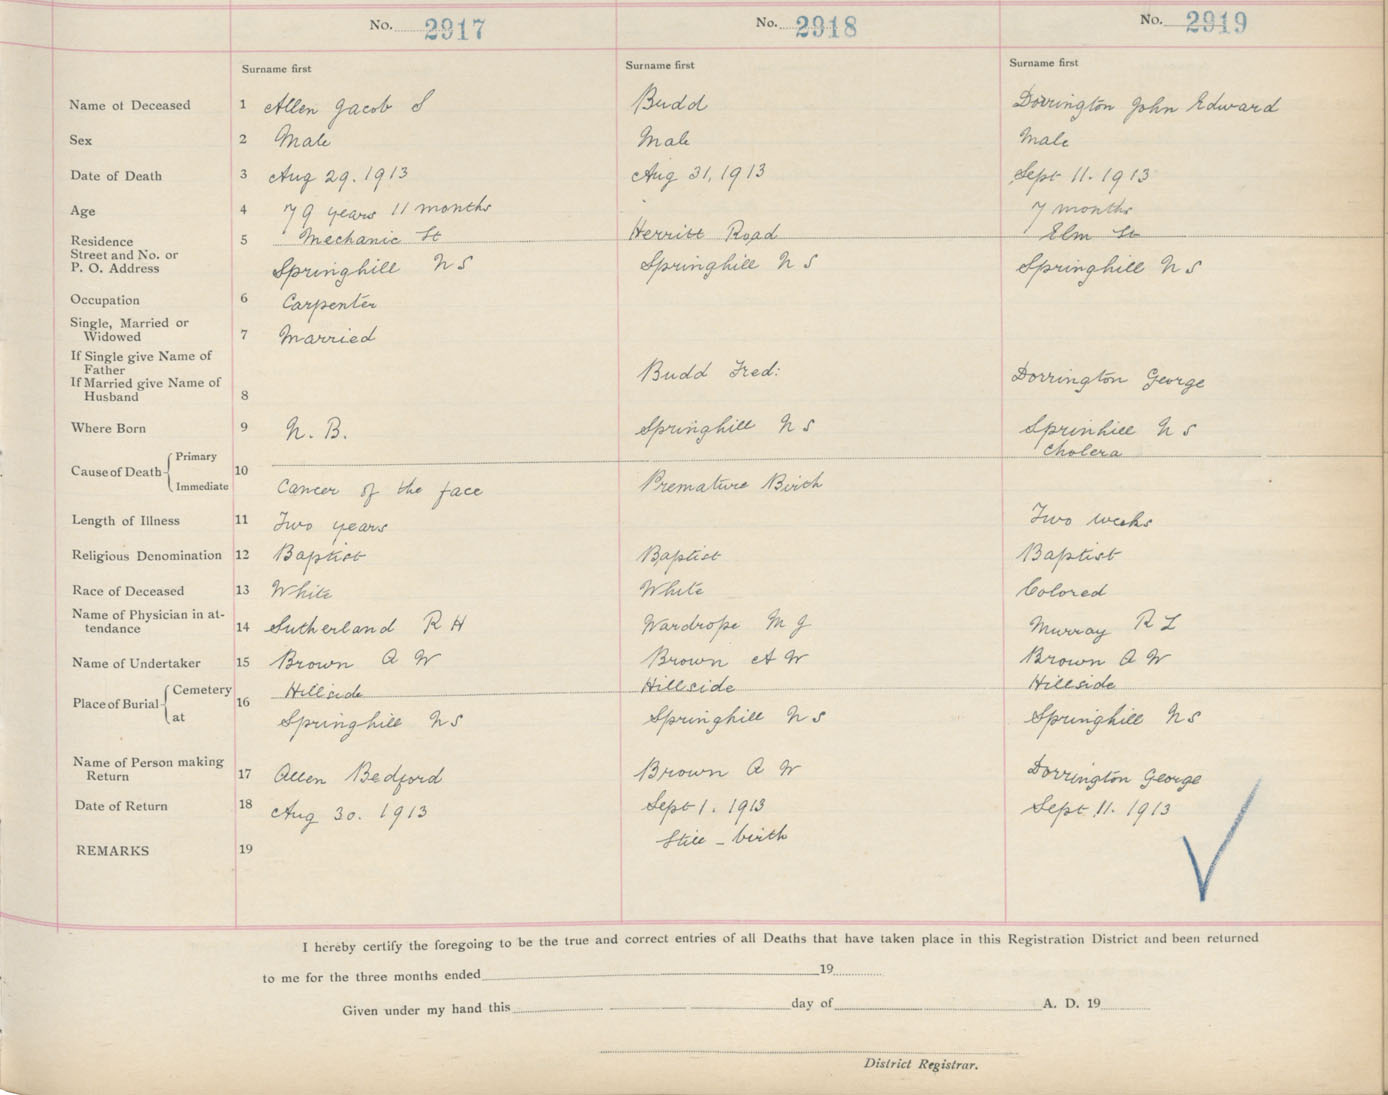 No. 2917 No. 2918 No. 2919
Surname first Surname first Surname first
Name of Deceased 1 Allen Jacob S Budd Dorrington John Edward
Sex 2 Male Male Male
Date of Death 3 Aug 29. 1913 Aug 31, 1913 Sept 11. 1913
Age 4 79 years 11 months 7 months
Residence 5 Mechanic St Herritt Road Elm St
Street and No. or
P. O. Address Springhill N S Springhill N S Springhill N S
Occupation 6 Carpenter
Single, Married or
Widowed 7 Married
If Single give Name of
Father Budd Fred: Dorrington George
If Married give Name of
Husband 8
Where Born 9 N. B. Springhill N S Sprinhill N S
Cause of Death Primary 10 Cholera
Immediate Cancer of the face Premature Birth
Length of Illness 11 Two years Two weeks
Religious Denomination 12 Baptist Baptist Baptist
Race of Deceased 13 White White Colored
Name of Physician in at-
tendance 14 Sutherland R H Wardrope M J Murray R L
Name of Undertaker 15 Brown A W Brown A W Brown A W
Place of Burial Cemetery 16 Hillside Hillside Hillside
at Springhill N S Springhill N S Springhill N S
Name of Person making
Return 17 Allen Bedford Brown A W Dorrington George
Date of Return 18 Aug 30. 1913 Sept 1. 1913 Sept 11. 1913
REMARKS 19 Still - birth
I hereby certify the foregoing to be the true and correct entries of all Deaths that have taken place in this Registration District and been returned
to me for the three months ended 19
Given under my hand this day of A. D. 19
District Registrar.